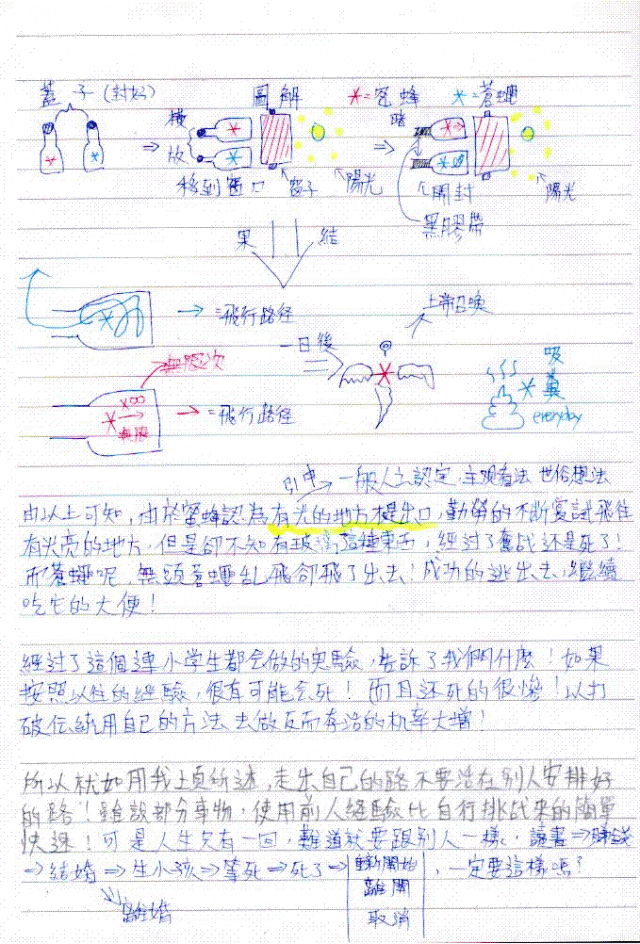 蓋子(封好)
圖解
*=蜜蜂
*=蒼蠅
⇒
橫放
移到窗口
窗子
陽光
⇒
開封
黑膠帶
陽光
果 結
→=飛行路徑
一日後
上帝召喚
吸糞
everyday
無限次
x∞
→=飛行路徑
引申→一般人之認定,主观看法 世俗想法
由以上可知,由於蜜蜂認為有光的地方是出口,勤勞的不斷嘗試飛往
有光亮的地方,但是卻不知有玻璃這種東西,經过了奮战还是死了!
而蒼蠅呢,無頭蒼蠅乱飛卻飛了出去!成功的逃出去,繼續
吃它的大便!
經过了這個連小学生都会做的实驗,告訴了我們什麼!如果
按照以往的經驗,很有可能会死!而且还死的很慘!以打
破伝統用自己的方法去做反而存活的机率大增!
所以就如用我上頁所述,走出自己的路不要活在別人安排好
的路!雖説部分事物,使用前人經驗比自行挑战来的簡單
快速!可是人生只有一回,難道就要跟別人一樣,讀書⇒賺錢
⇒結婚⇒生小孩⇒等死⇒死了⇒ 重新開始 離開 取消 ,一定要這樣嗎?
離婚